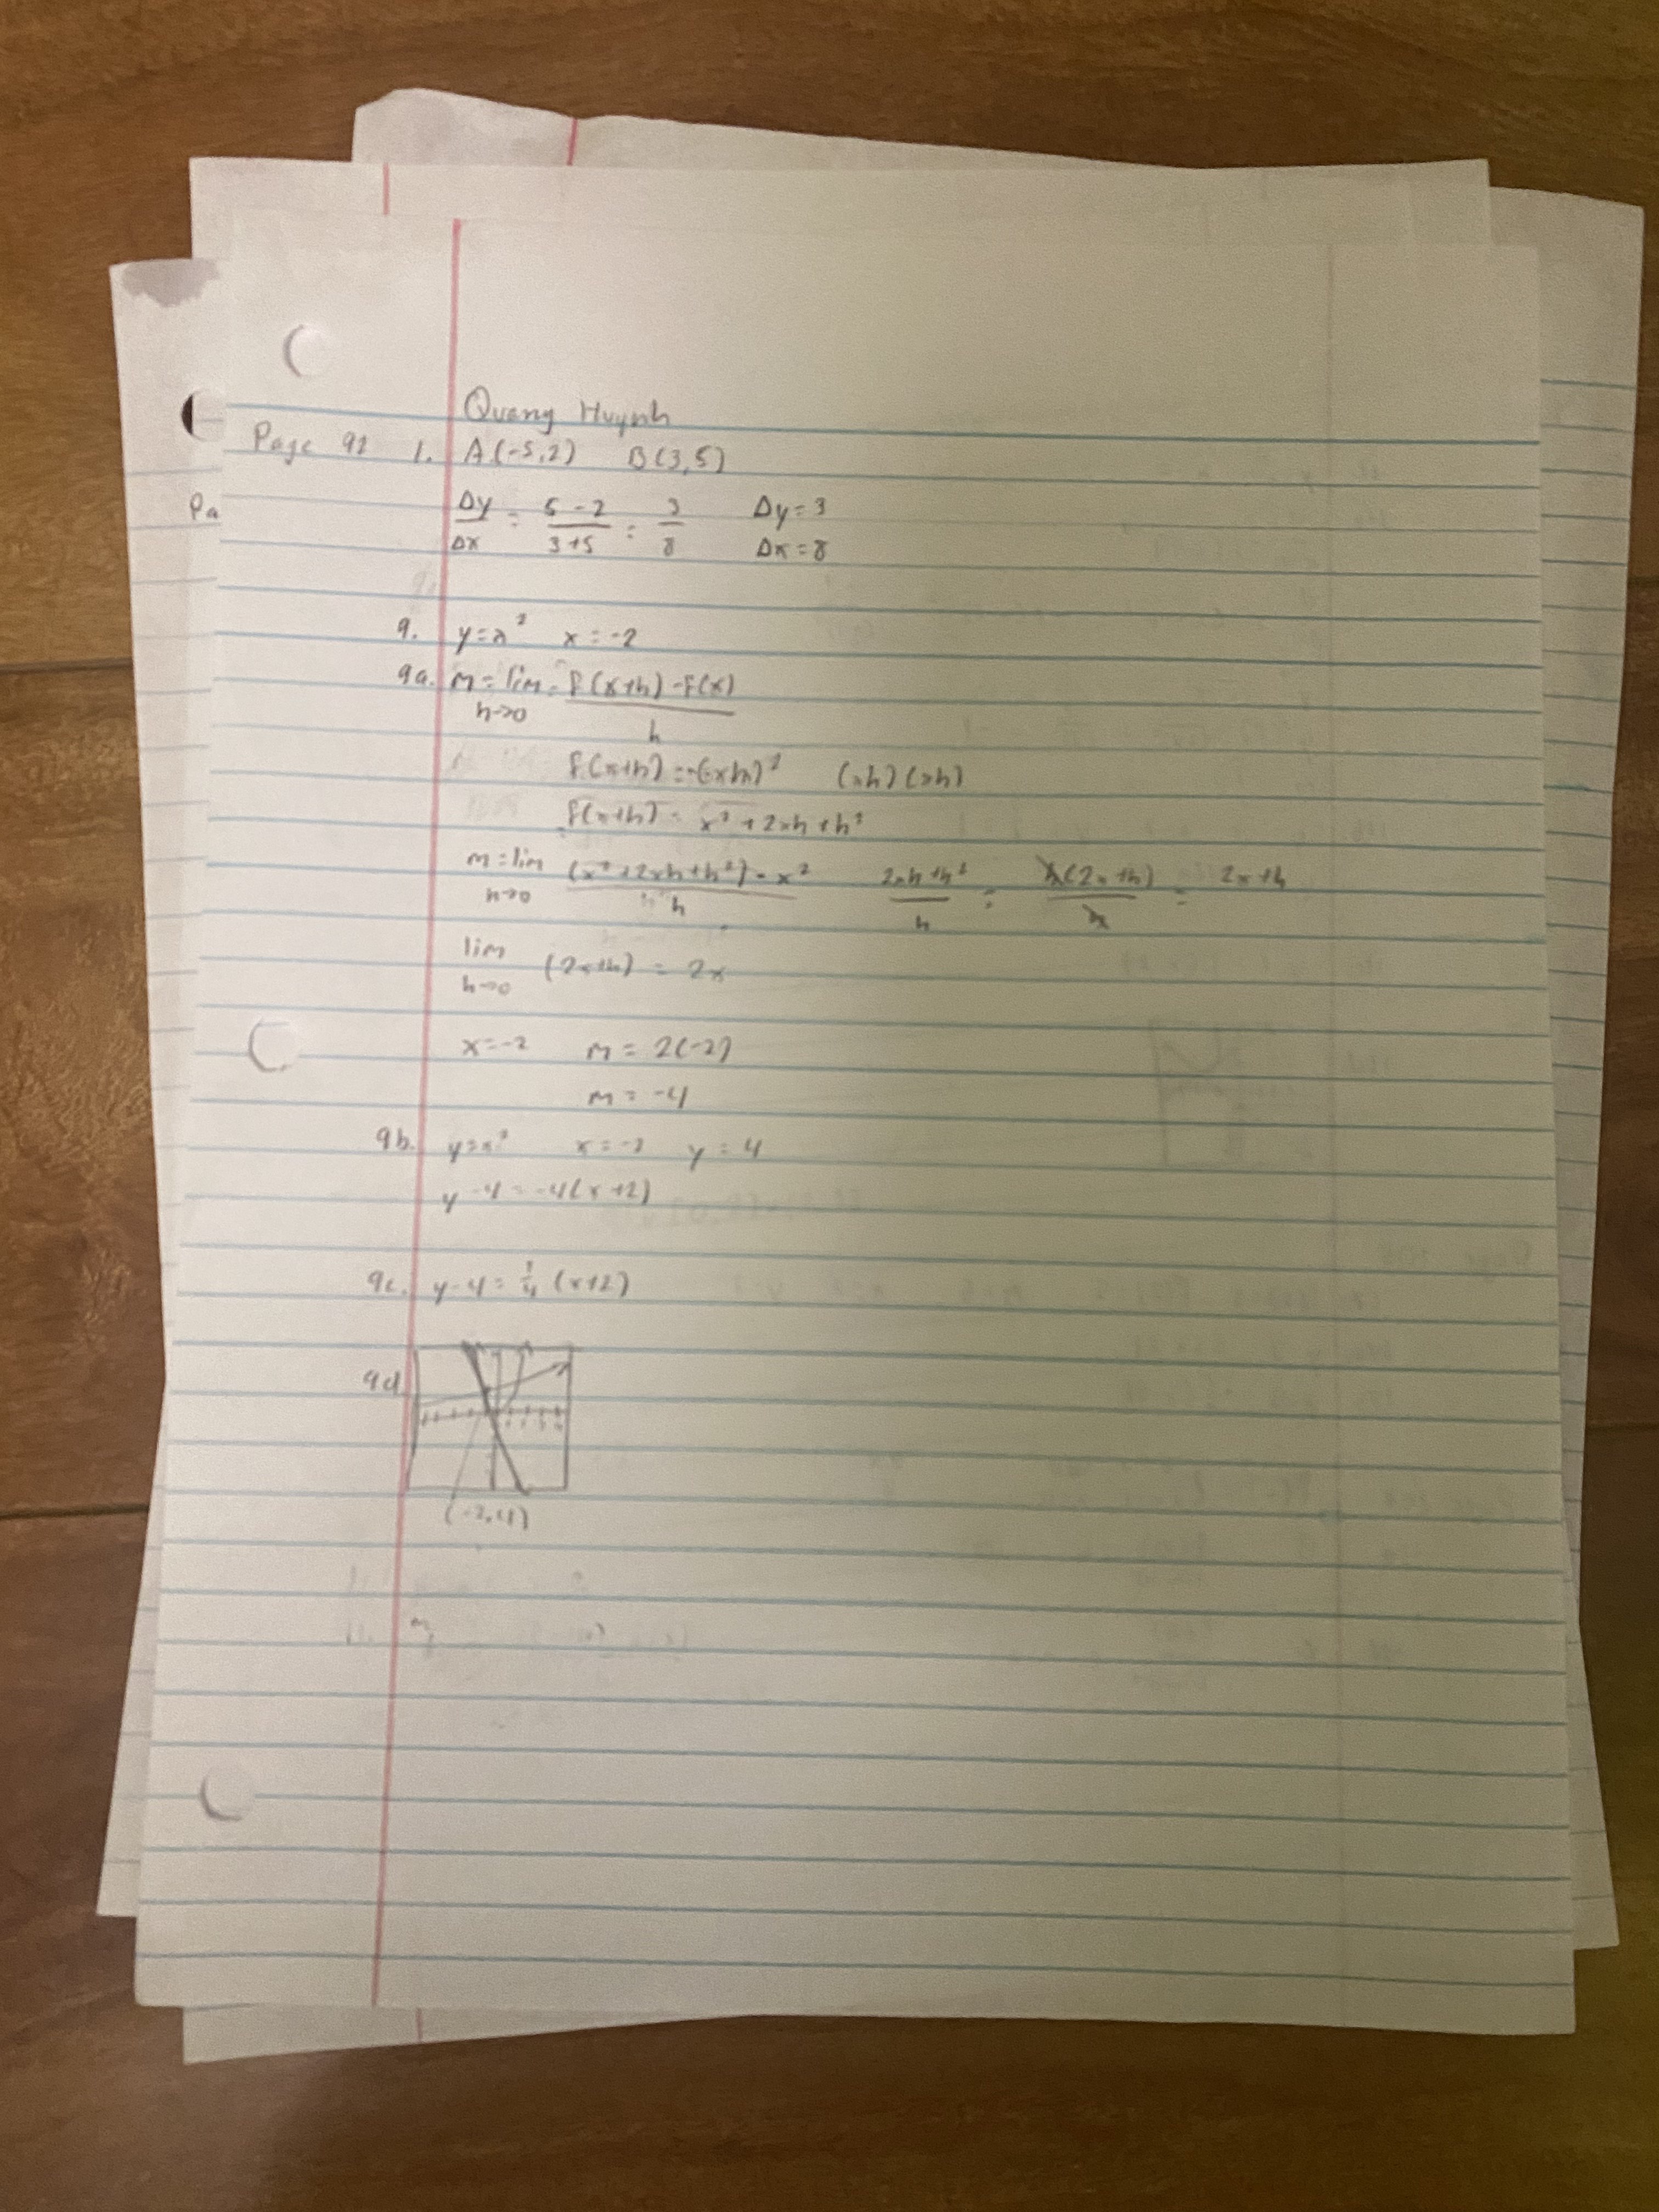 Quang Huynh
Page 92 1. A(-5,2) B(3,5)
Pa
Δy/Δx = 5-2/3+5 = 3/8 Δy=3
Δx=8
9. y=x² x=-2
9a. m=lim h→0 f(x+h)-f(x)/h
f(x+h)=(xh)² (xh)(xh)
f(x+h)= x²+2xh+h²
m=lim h→0 (x²+2xh+h²)-x²/h 2xh+h²/h = h(2x+h)/h = 2x+h
lim h→0 (2x+h) = 2x
x=-2 m = 2(-2)
m = -4
9b. y=x² x=-2 y=4
y-4=-4(x+2)
9c. y-4=1/4(x+2)
9d.
(-2,4)
m